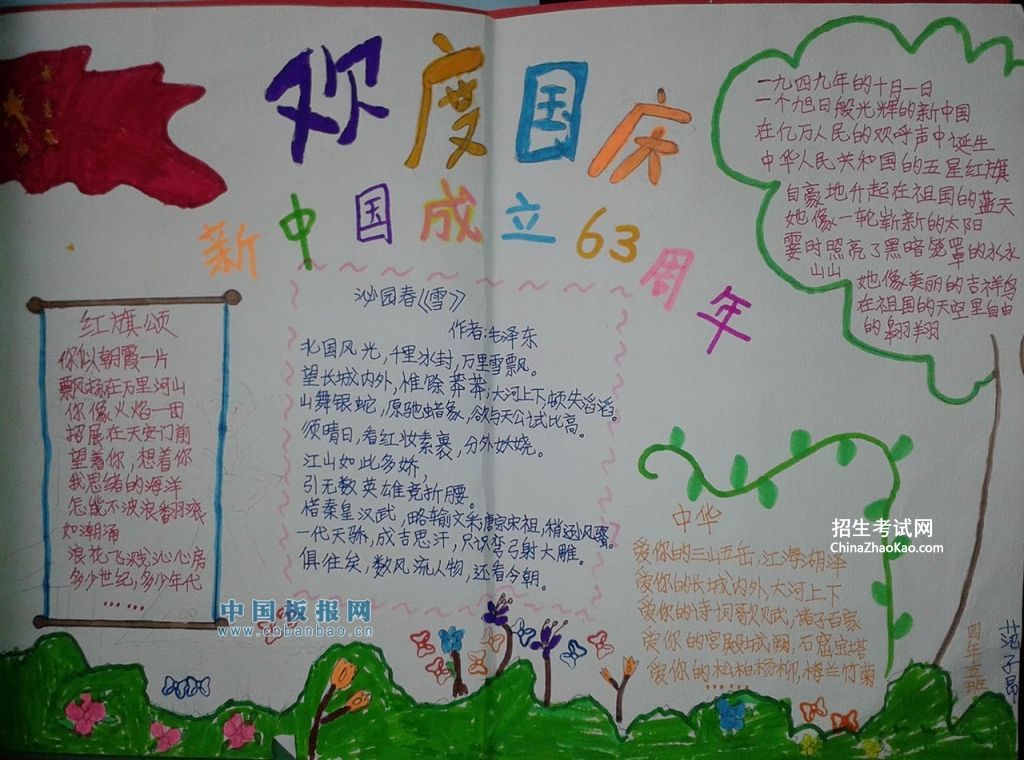 欢度国庆
新中国成立63周年
一九四九年的十月一日
一个旭日般光辉的新中国
在亿万人民的欢呼声中诞生
中华人民共和国的五星红旗
自豪地升起在祖国的蓝天
她像一轮崭新的太阳
霎时照亮了黑暗笼罩的水水
山山
她像美丽的吉祥鸟
在祖国的天空里自由
的翱翔
沁园春《雪》
作者:毛泽东
北国风光,千里冰封,万里雪飘。
望长城内外,惟馀莽莽;大河上下顿失滔滔。
山舞银蛇,原驰蜡象,欲与天公试比高。
须晴日,看红妆素裹,分外妖娆。
江山如此多娇,
引无数英雄竞折腰。
惜秦皇汉武,略输文采唐宗宋祖,稍逊风骚。
一代天骄,成吉思汗,只识弯弓射大雕。
俱往矣,数风流人物,还看今朝。
红旗颂
你似朝霞一片
飘扬在万里河山
你像火焰一团
招展在天安门前
望着你,想着你
我思绪的海洋
怎能不波浪翻滚
如潮涌
浪花飞溅沁心房
多少世纪,多少年代
……
中华
爱你的三山五岳,江海湖泽
爱你的长城内外,大河上下
爱你的诗词歌赋,诸子百家
爱你的宫殿城阙,石窟宝塔
爱你的松柏杨柳,梅兰竹菊
……
四年五班
范子昂
招生考试网
ChinaZhaoKao.com
中国板报网
www.cnbanbao.cn